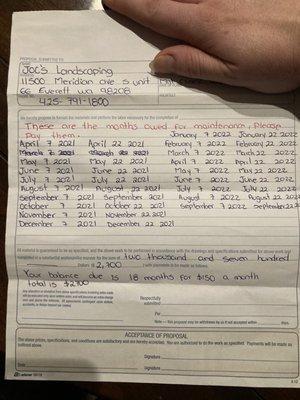 PROPOSAL SUBMITTED TO:
Joc's Landscaping
11500 Meridian ave s unit
66 Everett wa 98208
425-791-1800
We hereby propose to furnish the materials and perform the labor necessary for the completion of
These are the months owed for maintenance, Please
Pay them.
January 7 2022 January 22 2022
April 7 2021 April 22 2021 February 7 2022 February 22 2022
March 7 2022 March 22 2022
May 7 2021 May 22 2021 April 7 2022 April 22 2022
June 7 2021 June 22 2021 May 7 2022 May 22 2022
July 7 2021 July 22 2021 June 7 2022 June 22 2022
August 7 2021 August 22 2021 July 7 2022 July 22 2022
September 7 2021 September 2021 August 7 2022 August 22 2022
October 7 2021 October 22 2021 September 7 2022 September 22
November 7 2021 November 22 2021
December 7 2021 December 22 2021
All material is guaranteed to be as specified, and the above work to be performed in accordance with the drawings and specifications submitted for above work and
completed in a substantial workmanlike manner for the sum of two thousand and seven hundred
Dollars ($ 2,700 ) with payments to be made as follows
Your balance due is 18 months for $150 a month
Total is $2700
Respectfully
submitted
Per
Note — this proposal may be withdrawn by us if not accepted within days.
ACCEPTANCE OF PROPOSAL
The above prices, specifications, and conditions are satisfactory and are hereby accepted. You are authorized to do the work as specified. Payments will be made as
outlined above.
Signature
Date Signature